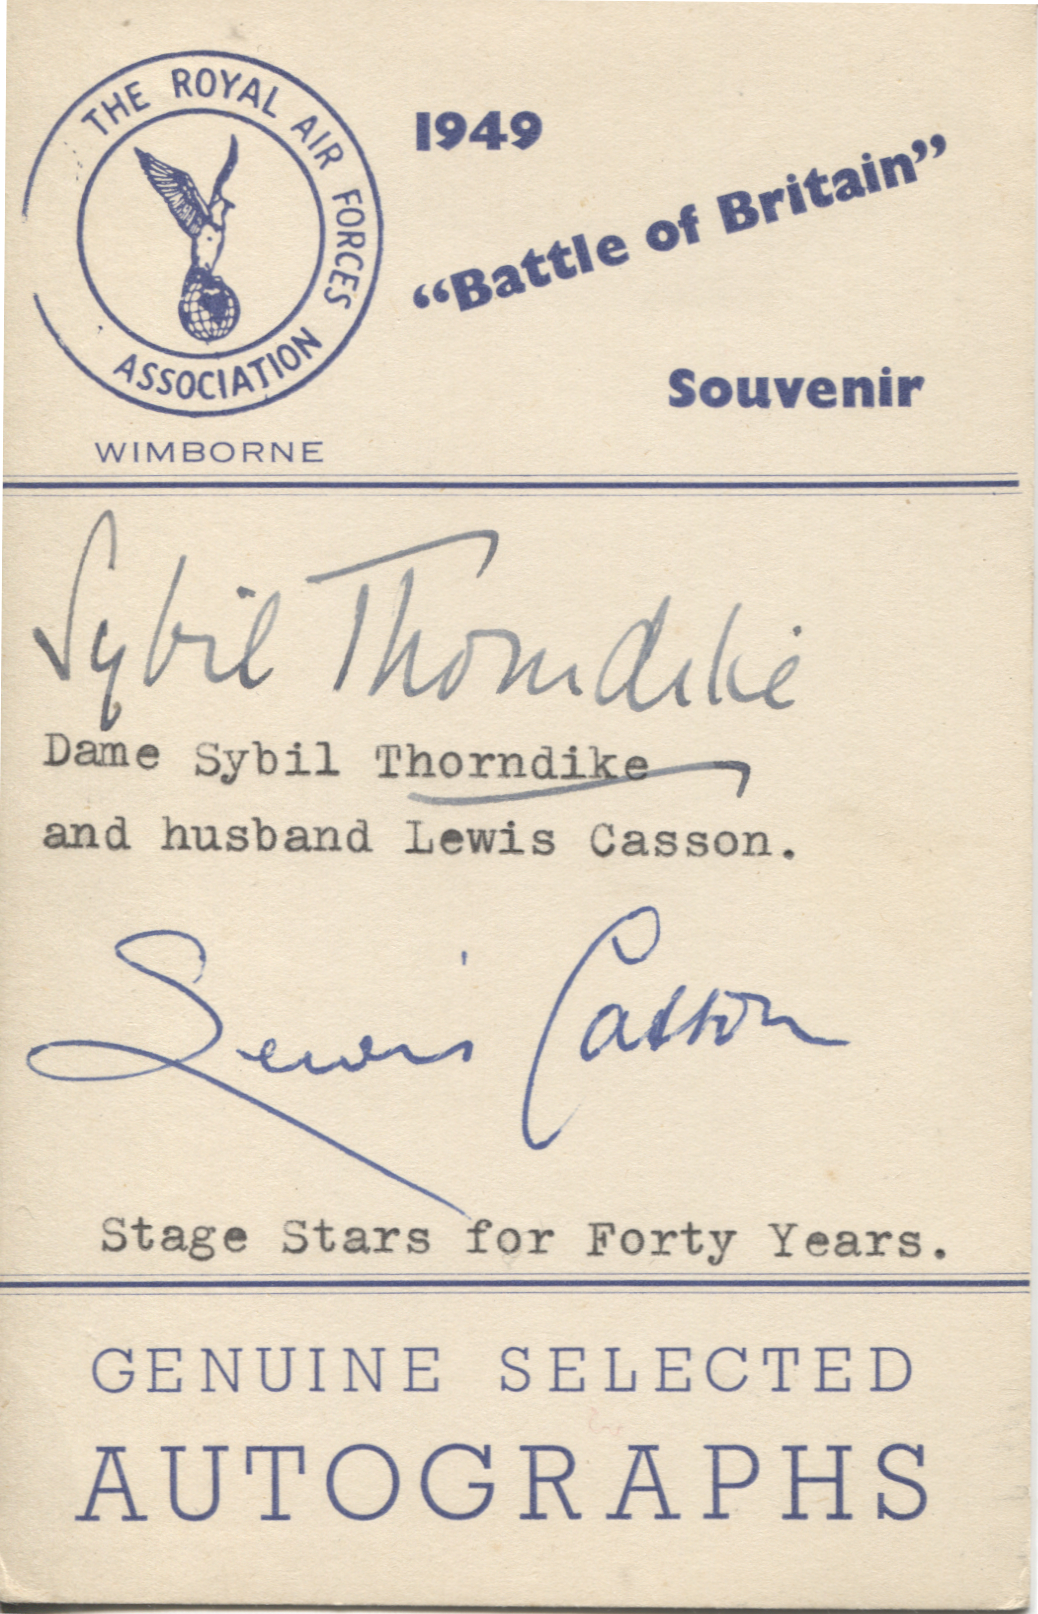 THE ROYAL AIR FORCES
ASSOCIATION
WIMBORNE
1949
“Battle of Britain”
Souvenir
Sybil Thorndike
Dame Sybil Thorndike
and husband Lewis Casson.
Lewis Casson
Stage Stars for Forty Years.
GENUINE SELECTED
AUTOGRAPHS